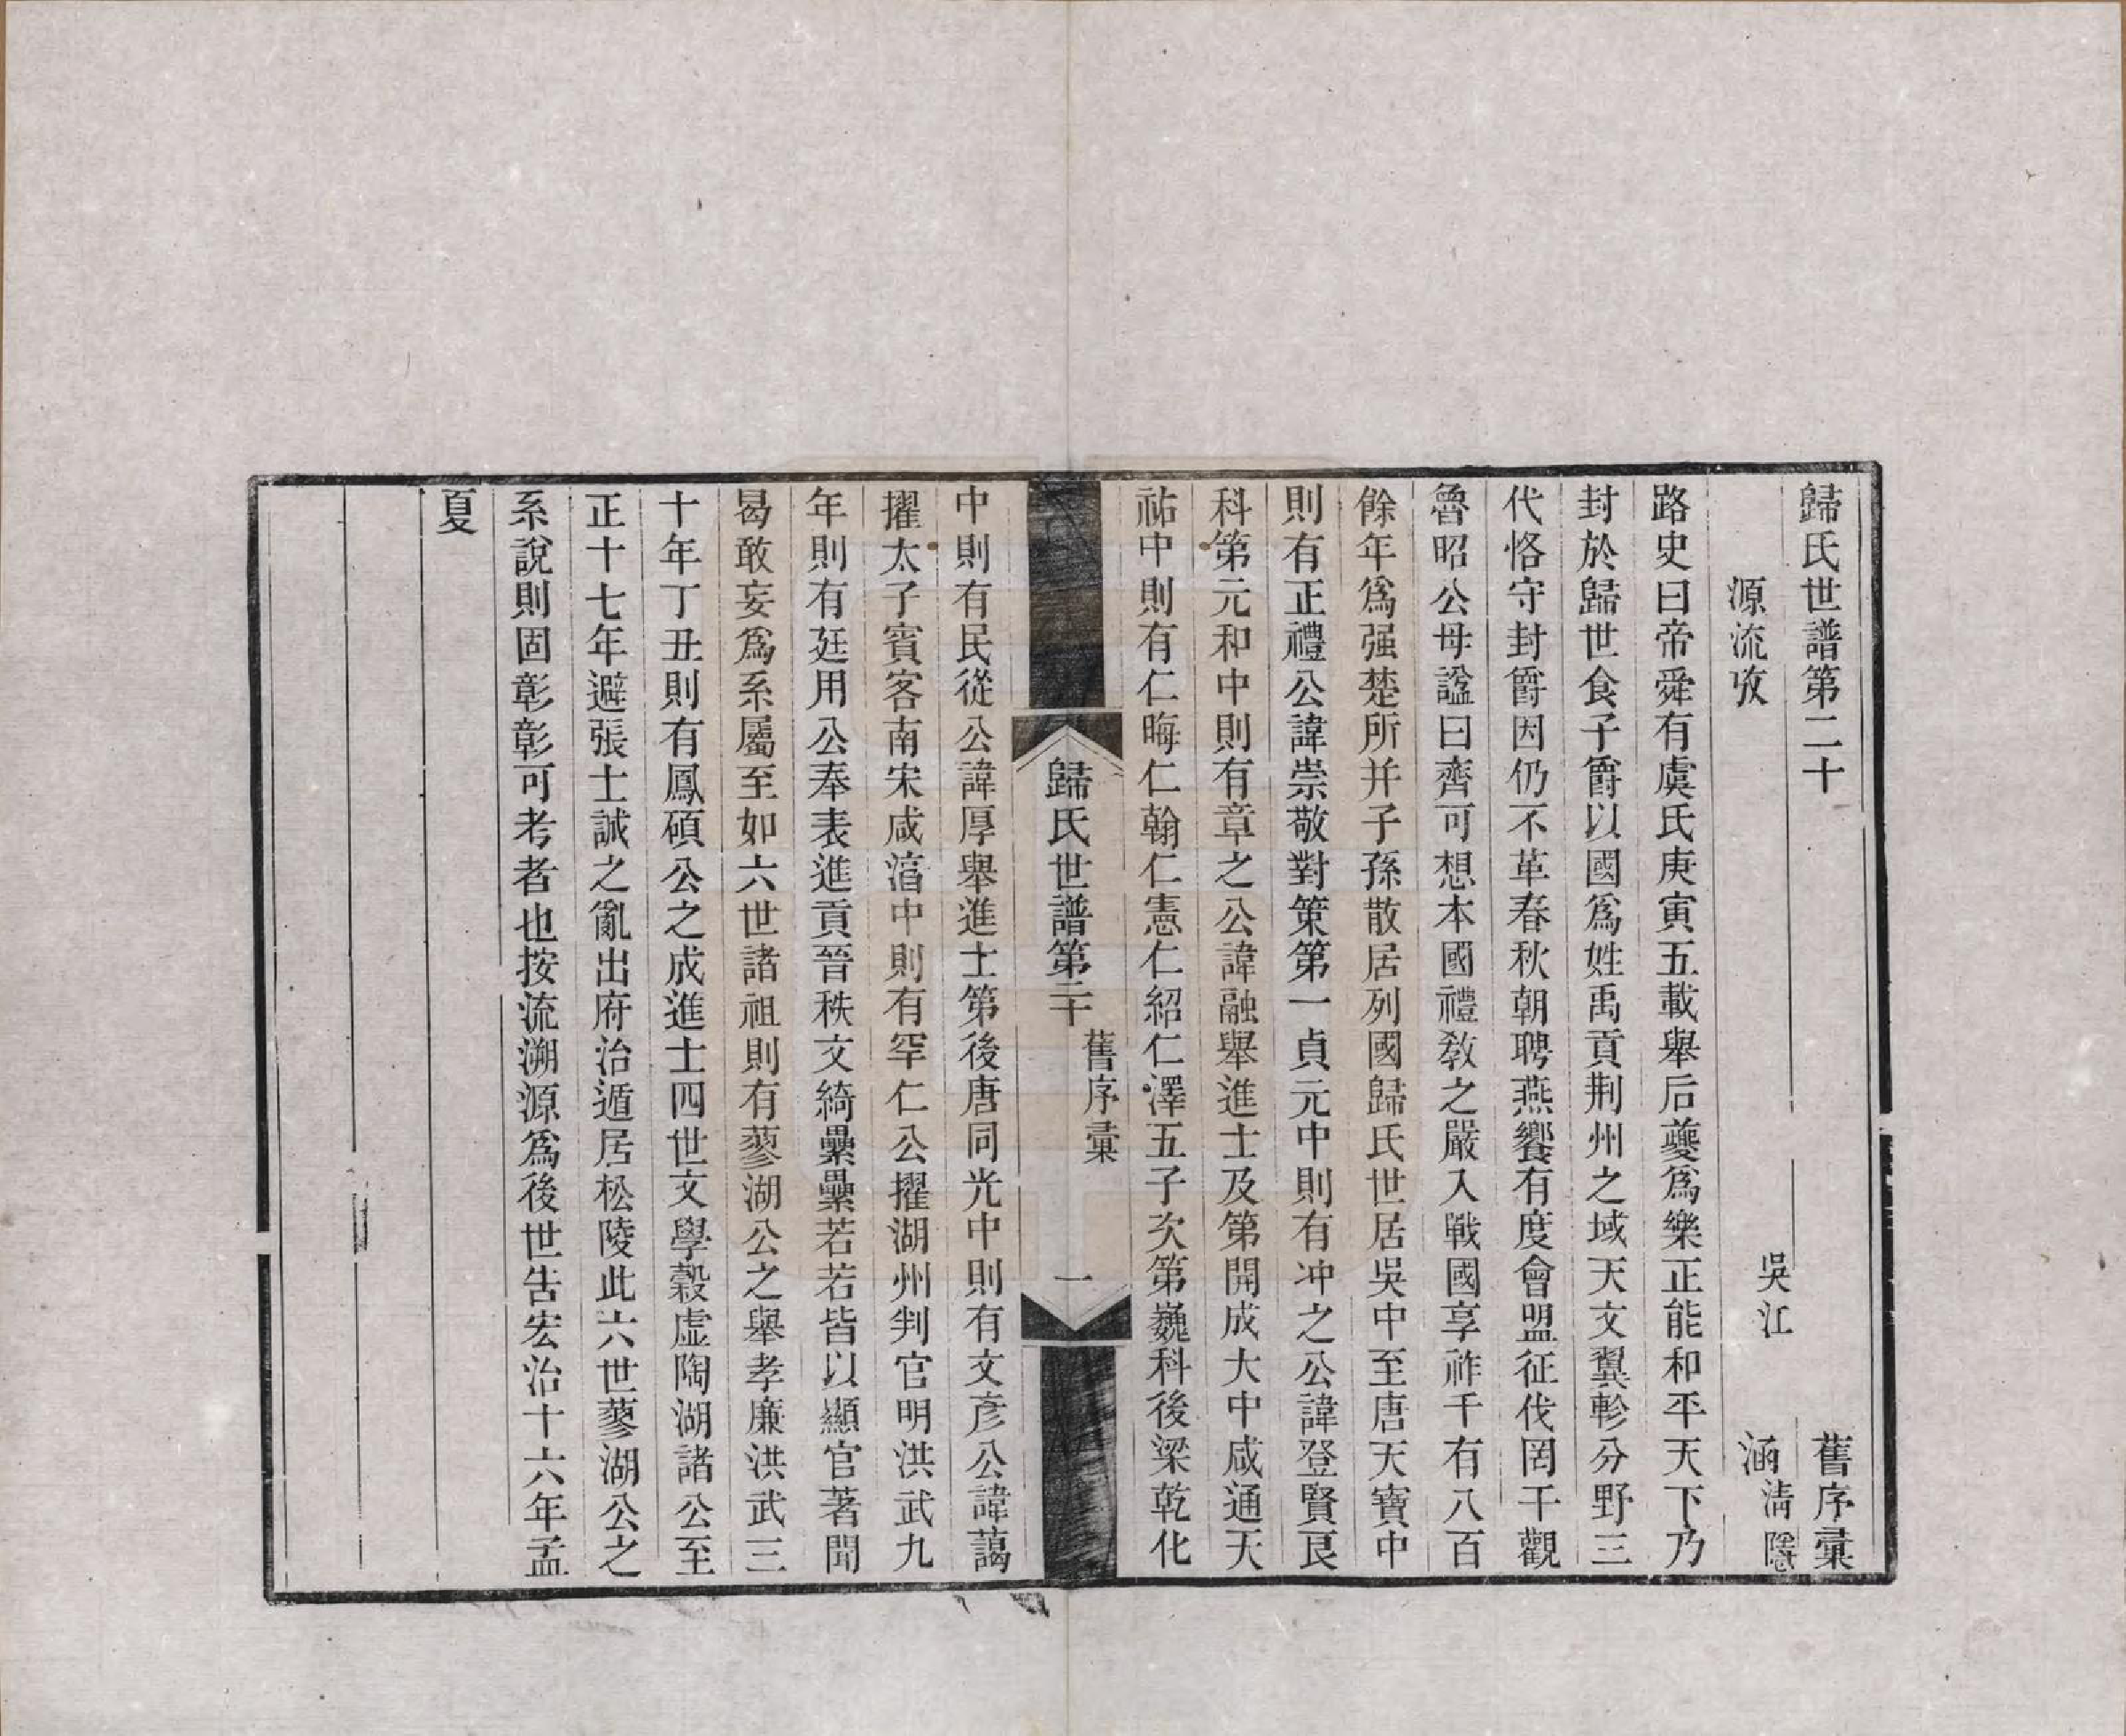 歸氏世譜第二十　舊序彙
源流攷　吳江　涵清隱
路史曰帝舜有虞氏庚寅五載舉后夔爲樂正能和平天下乃
封於歸世食子爵以國爲姓禹貢荆州之域天文翼軫分野三
代恪守封爵因仍不革春秋朝聘燕饗有度會盟征伐罔干觀
魯昭公母諡曰齊可想本國禮敎之嚴入戰國享祚千有八百
餘年爲强楚所并子孫散居列國歸氏世居吳中至唐天寶中
則有正禮公諱崇敬對策第一貞元中則有冲之公諱登賢良
科第元和中則有章之公諱融舉進士及第開成大中咸通天
祐中則有仁晦仁翰仁憲仁紹仁澤五子次第巍科後梁乾化
歸氏世譜第二十　舊序彙　一
中則有民從公諱厚舉進士第後唐同光中則有文彥公諱藹
擢太子賓客南宋咸湻中則有罕仁公擢湖州判官明洪武九
年則有廷用公奉表進貢晉秩文綺纍纍若若皆以顯官著聞
曷敢妄爲系屬至如六世諸祖則有蓼湖公之舉孝廉洪武三
十年丁丑則有鳳碩公之成進士四世文學穀虛陶湖諸公至
正十七年避張士誠之亂出府治遁居松陵此六世蓼湖公之
系說則固彰彰可考者也按流溯源爲後世告宏治十六年孟
夏